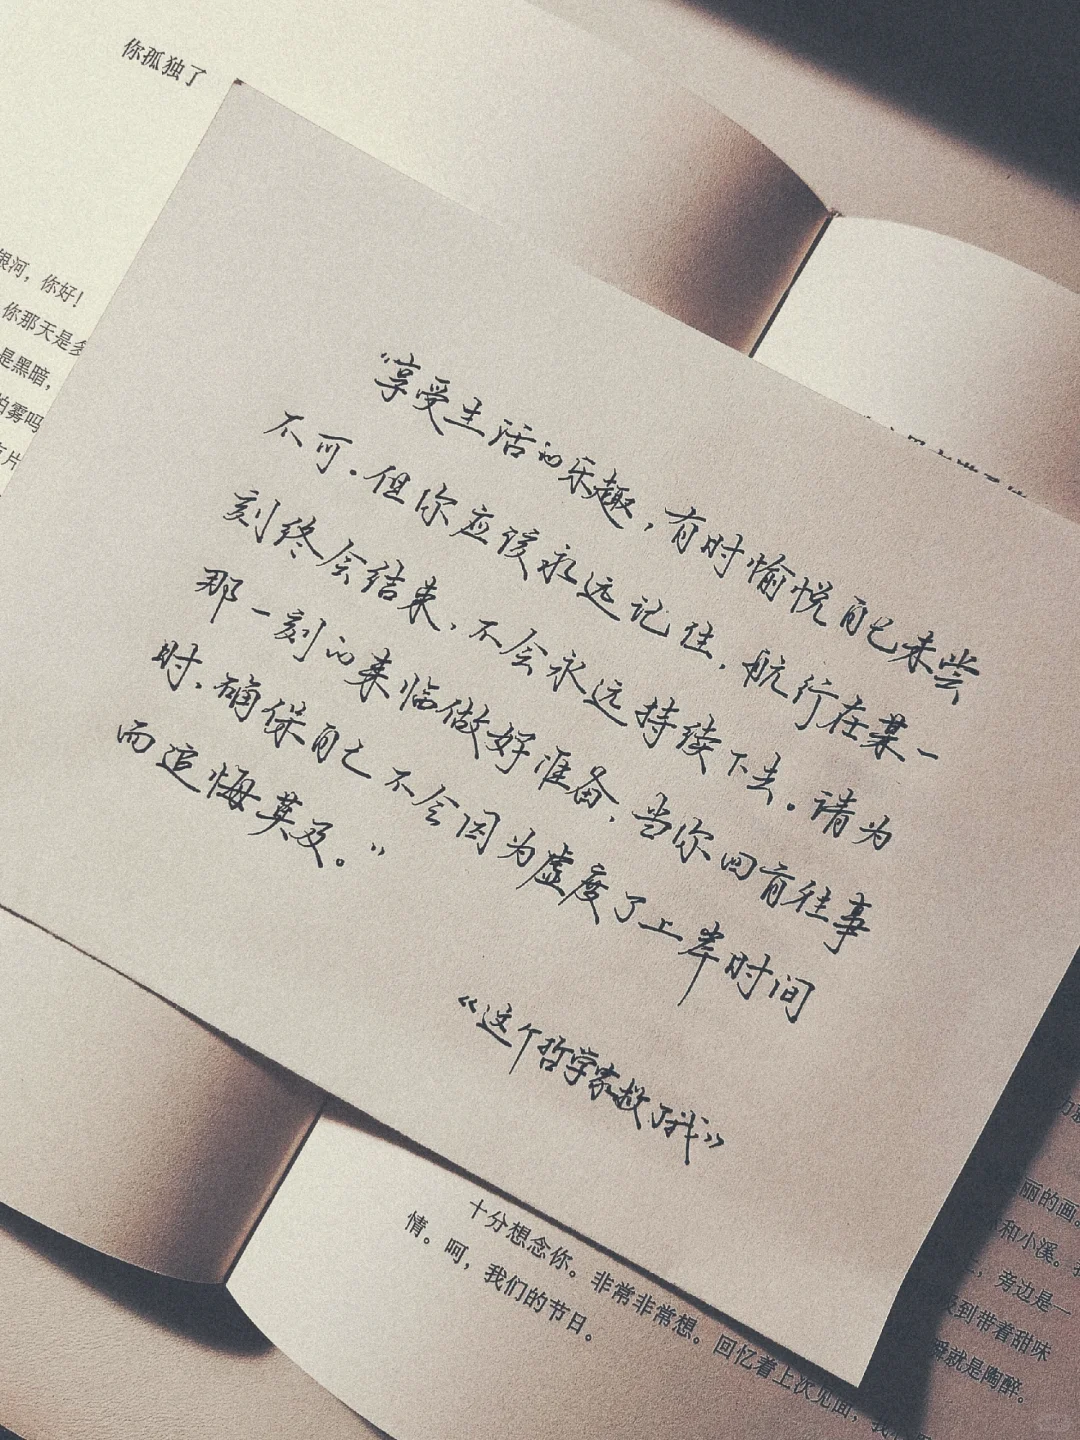 你孤独了
银河，你好！
你那天是多
是黑暗，
怕雾吗
“享受生活的乐趣，有时愉悦自己未尝
不可．但你应该永远记住，航行在某一
刻终会结束，不会永远持续下去。请为
那一刻的来临做好准备，当你回首往事
时，确保自己不会因为虚度了上岸时间
而追悔莫及。”
《这个哲学家救了我》
十分想念你。非常非常想。回忆着上次见面，我
情。呵，我们的节日。
丽的画。
和小溪。
，旁边是一
到带着甜味
就是陶醉。